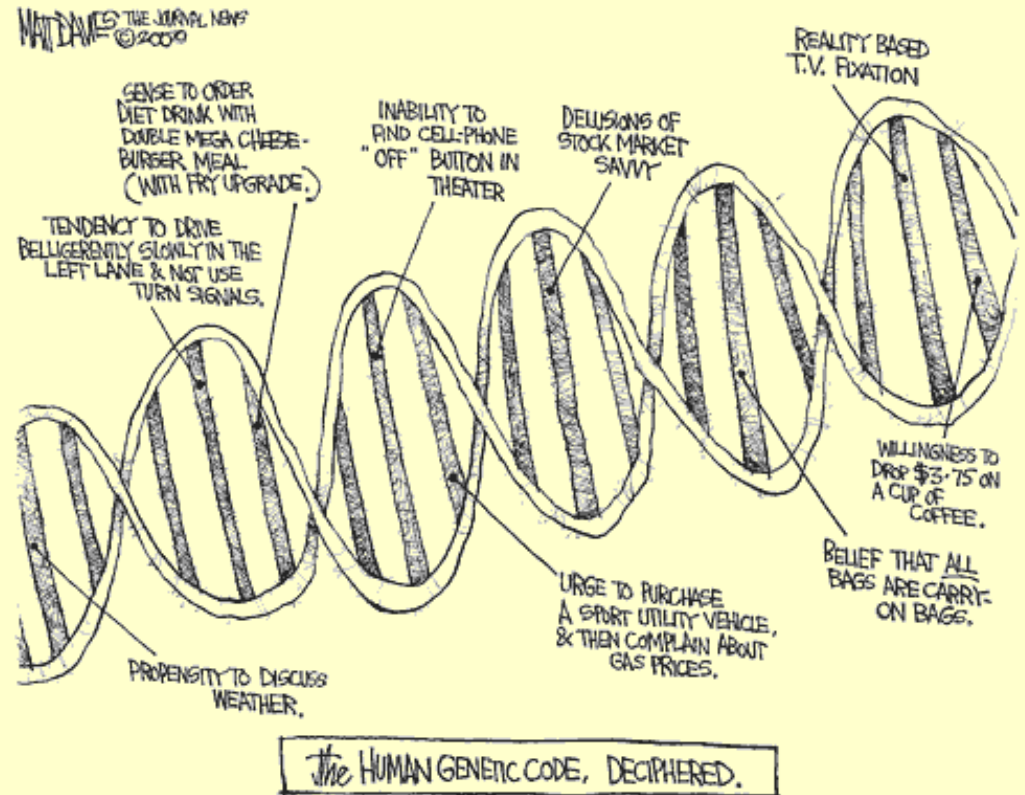 MATT DAVIES THE JOURNAL NEWS
©2000
SENSE TO ORDER
DIET DRINK WITH
DOUBLE MEGA CHEESE-
BURGER MEAL
(WITH FRY UPGRADE.)
TENDENCY TO DRIVE
BELLIGERENTLY SLOWLY IN THE
LEFT LANE & NOT USE
TURN SIGNALS.
INABILITY TO
FIND CELL-PHONE
"OFF" BUTTON IN
THEATER
DELUSIONS OF
STOCK MARKET
SAVVY
REALITY BASED
T.V. FIXATION
WILLINGNESS TO
DROP $3.75 ON
A CUP OF
COFFEE.
BELIEF THAT ALL
BAGS ARE CARRY-
ON BAGS.
URGE TO PURCHASE
A SPORT UTILITY VEHICLE,
& THEN COMPLAIN ABOUT
GAS PRICES.
PROPENSITY TO DISCUSS
WEATHER.
The HUMAN GENETIC CODE, DECIPHERED.